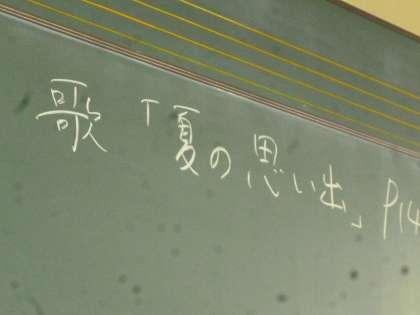 歌「夏の思い出」P14